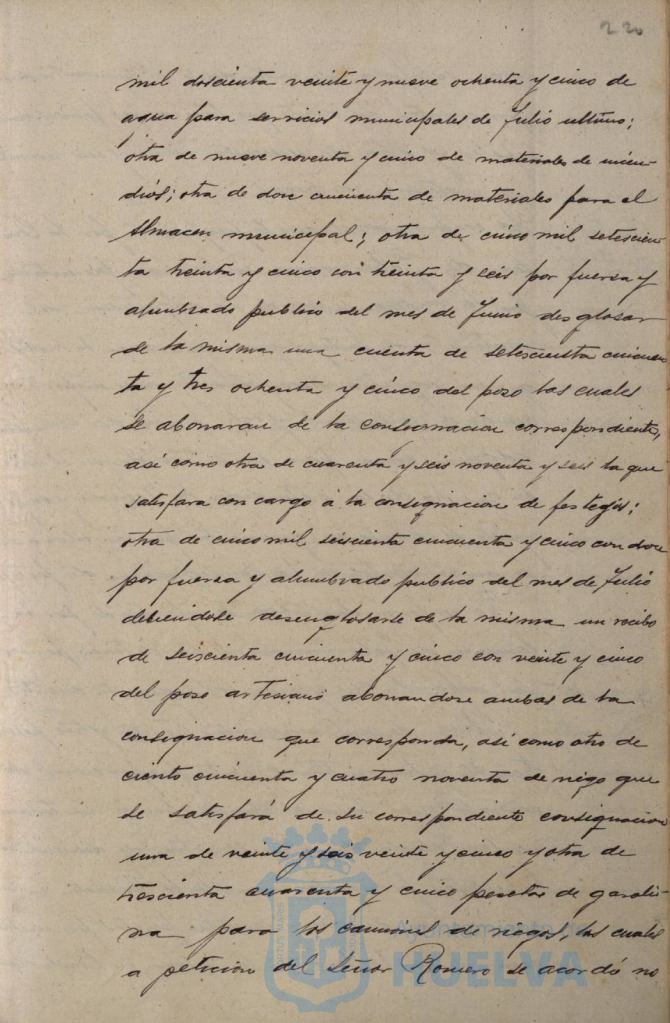 220
mil doscienta veinte y nueve ochenta y cinco de
agua para servicios municipales de Julio ultimo;
otra de nueve noventa y cinco de materiales de incen-
dios; otra de doce cincuenta de materiales para el
Almacen municipal; otra de cinco mil setescien-
ta treinta y cinco con treinta y seis por fuerza y
alumbrado publico del mes de Junio desglosar
de la misma una cuenta de setescienta cincuen
ta y tres ochenta y cinco del pozo las cuales
se abonaran de la consignacion correspondiente,
así como otra de cuarenta y seis noventa y seis la que
satisfara con cargo á la consignacion de festejos;
otra de cinco mil seiscienta cincuenta y cinco con doce
por fuerza y alumbrado publico del mes de Julio
debiendose desenglosarse de la misma un recibo
de seiscienta cincuenta y cinco con veinte y cinco
del pozo artesiano abonandose ambas de la
consignacion que corresponda, así como otro de
ciento cincuenta y cuatro noventa de riego que
se satisfará de su correspondiente consignacion
una de veinte y seis veinte y cinco y otra de
trescienta cuarenta y cinco pesetas de gasoli-
na para los camiones de riegos, las cuales
a peticion del Señor Romero se acordó no
Ayuntamiento de
HUELVA